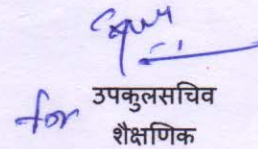 for उपकुलसचिव
शैक्षणिक